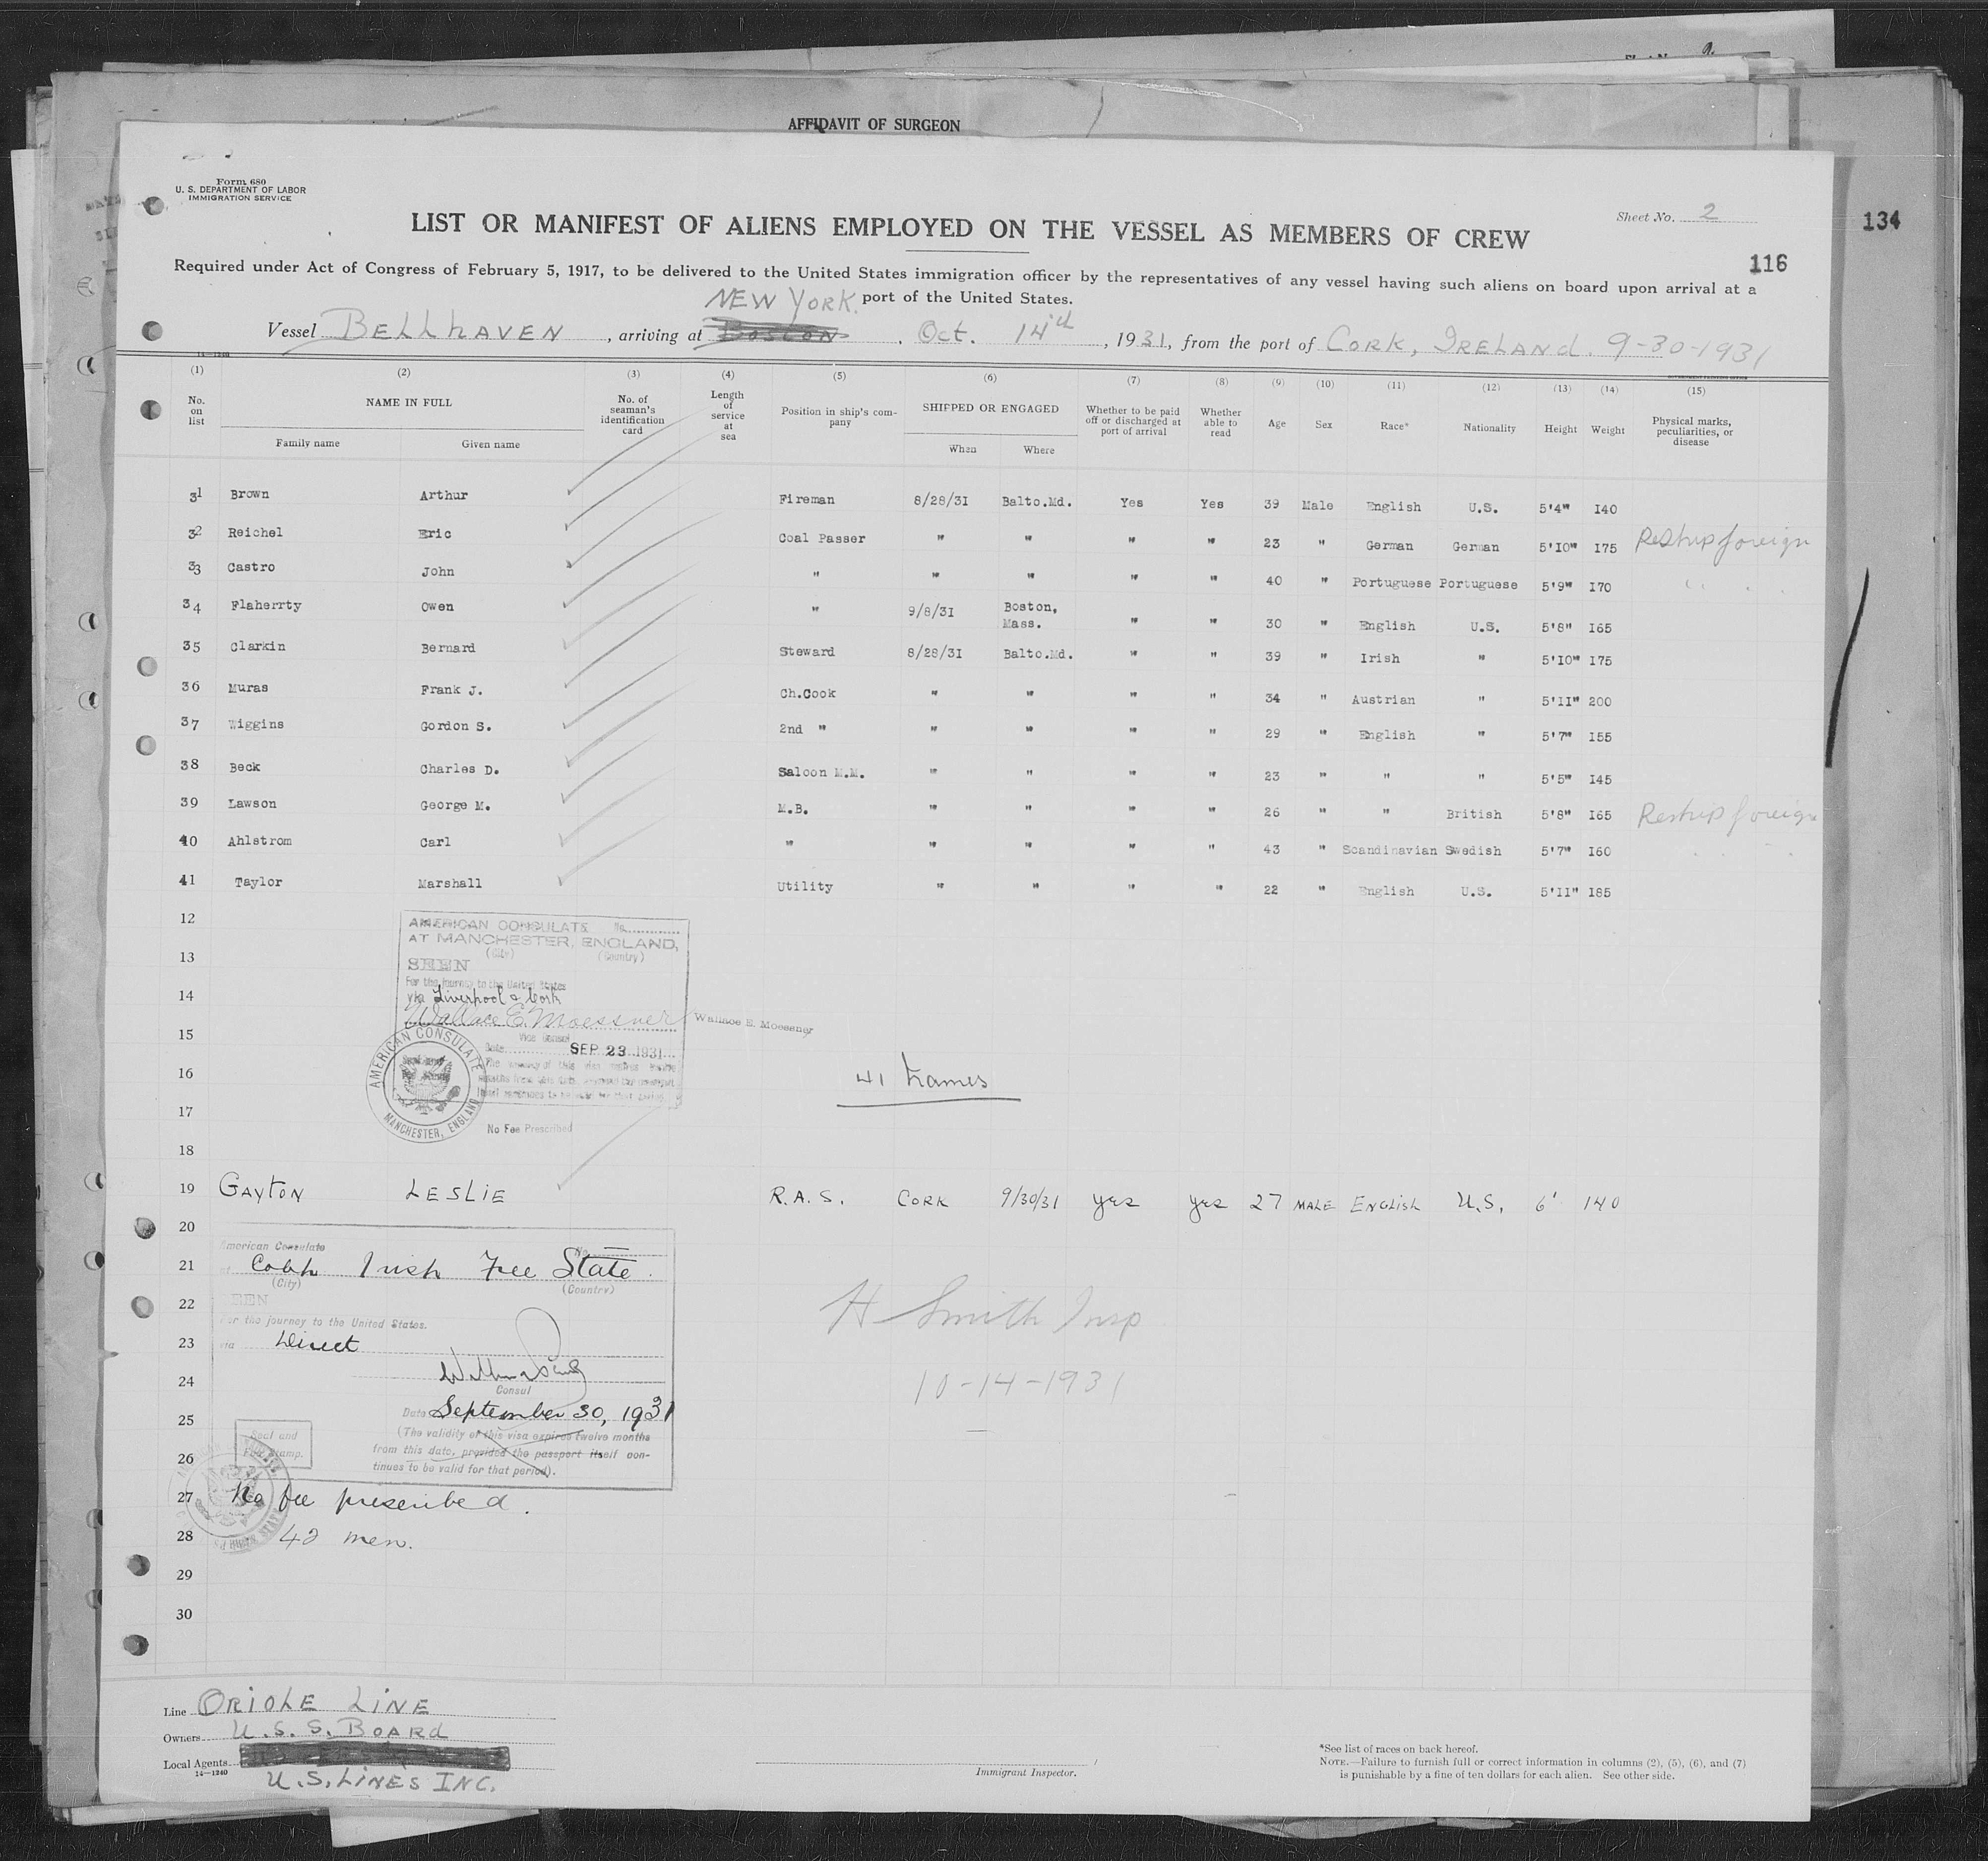 AFFIDAVIT OF SURGEON
Form 680
U. S. DEPARTMENT OF LABOR
IMMIGRATION SERVICE
Sheet No. 2
134
LIST OR MANIFEST OF ALIENS EMPLOYED ON THE VESSEL AS MEMBERS OF CREW
116
Required under Act of Congress of February 5, 1917, to be delivered to the United States immigration officer by the representatives of any vessel having such aliens on board upon arrival at a
port of the United States.
NEW YORK.
Vessel BELLHAVEN, arriving at BOSTON, Oct. 14th, 1931, from the port of CORK, IRELAND. 9-30-1931
14-1240
(1) (2) (3) (4) (5) (6) (7) (8) (9) (10) (11) (12) (13) (14) (15)
No. on list NAME IN FULL No. of seaman's identification card Length of service at sea Position in ship's company SHIPPED OR ENGAGED Whether to be paid off or discharged at port of arrival Whether able to read Age Sex Race* Nationality Height Weight Physical marks, peculiarities, or disease
Family name Given name When Where
31 Brown Arthur Fireman 8/28/31 Balto.Md. Yes Yes 39 Male English U.S. 5'4" 140
32 Reichel Eric Coal Passer " " " " 23 " German German 5'10" 175 Reship foreign
33 Castro John " " " " " 40 " Portuguese Portuguese 5'9" 170 " "
34 Flaherrty Owen " 9/8/31 Boston, Mass. " " 30 " English U.S. 5'8" 165
35 Clarkin Bernard Steward 8/28/31 Balto.Md. " " 39 " Irish " 5'10" 175
36 Muras Frank J. Ch.Cook " " " " 34 " Austrian " 5'11" 200
37 Wiggins Gordon S. 2nd " " " " " 29 " English " 5'7" 155
38 Beck Charles D. Saloon M.M. " " " " 23 " " " 5'5" 145
39 Lawson George M. M.B. " " " " 26 " " British 5'8" 165 Reship foreign
40 Ahlstrom Carl " " " " " 43 " Scandinavian Swedish 5'7" 160 " "
41 Taylor Marshall Utility " " " " 22 " English U.S. 5'11" 185
12
AMERICAN CONSULATE No.
AT MANCHESTER, ENGLAND,
(City) (Country)
13
SEEN
For the journey to the United States
14
via Liverpool & Cork
Wallace E. Moessner Wallace E. Moessner
15
Vice Consul
Date SEP 23 1931
AMERICAN CONSULATE
MANCHESTER, ENGLAND
No Fee Prescribed
16
41 Names
17
18
19 GAYTON LESLIE R.A.S. CORK 9/30/31 yes yes 27 MALE ENGLISH U.S. 6' 140
20
American Consulate No.
21
at Cobh Irish Free State.
(City) (Country)
22
SEEN
For the journey to the United States.
23
via Direct
H Smith Insp
24
Consul
10-14-1931
25
Date September 30, 1931
(The validity of this visa expires twelve months
from this date, provided the passport itself continues to be valid for that period).
Seal and
Fee Stamp.
26
27 No fee prescribed.
28 42 men.
29
30
Line ORIOLE LINE
Owners U.S.S. BOARD
Local Agents
14-1240
U.S. LINES INC.
Immigrant Inspector.
*See list of races on back hereof.
NOTE.—Failure to furnish full or correct information in columns (2), (5), (6), and (7)
is punishable by a fine of ten dollars for each alien. See other side.